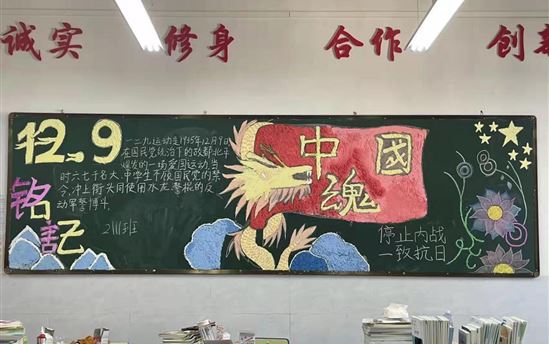 诚实 修身 合作 创新
12.9
铭记
一二九运动是1935年12月9日
在国民党统治下的故都北平
爆发的一场爱国运动,当
时六七千名大、中学生不顾国民党的禁
令,冲上街头同使用水龙、警棍的反
动军警搏斗。
中國
魂
停止内战
一致抗日